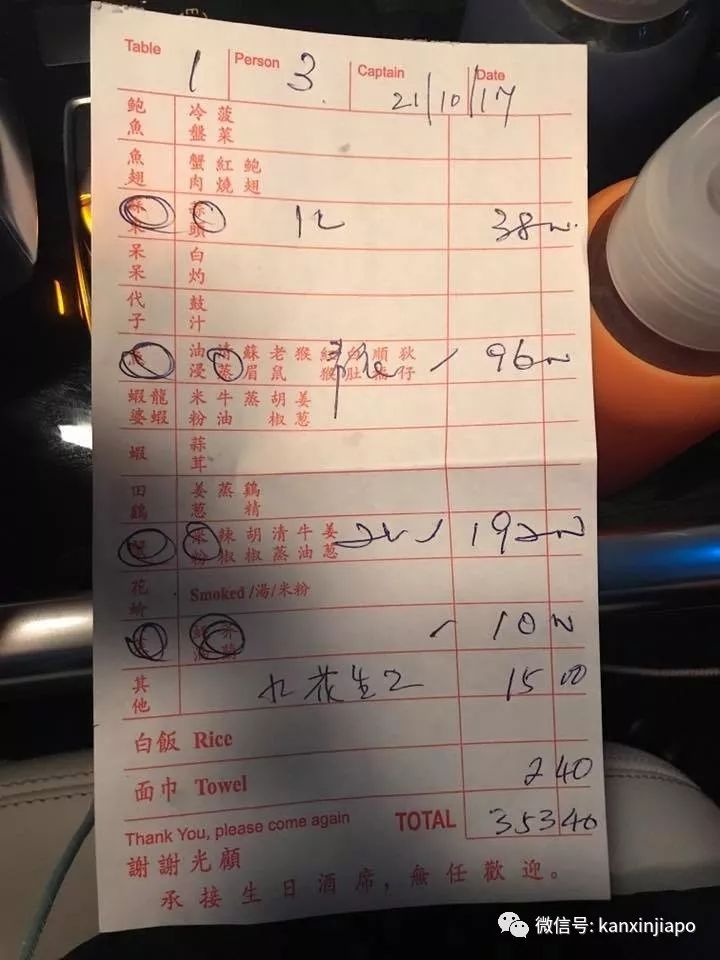 Table 1 Person 3 Captain Date
21/10/17
鮑魚 冷盤 菠菜
魚翅 蟹肉 紅燒 鮑翅
蒜頭 12 38
呆呆 白灼
代子 鼓汁
油浸 蒸 蘇眉 老鼠 猴 順 狄仔 1 96
蝦婆 龍蝦 米粉 牛油 蒸 胡椒 姜葱
蝦 蒜茸
田鷄 姜葱 蒸 鷄精
粉 辣椒 胡椒 清蒸 牛油 姜葱 1 192
花蚧 Smoked/湯/米粉
10
其他 花生 2 15 00
白飯 Rice
面巾 Towel 2 40
Thank You, please come again TOTAL 353 40
謝謝光顧
承接生日酒席，無任歡迎。
微信号: kanxinjiapo